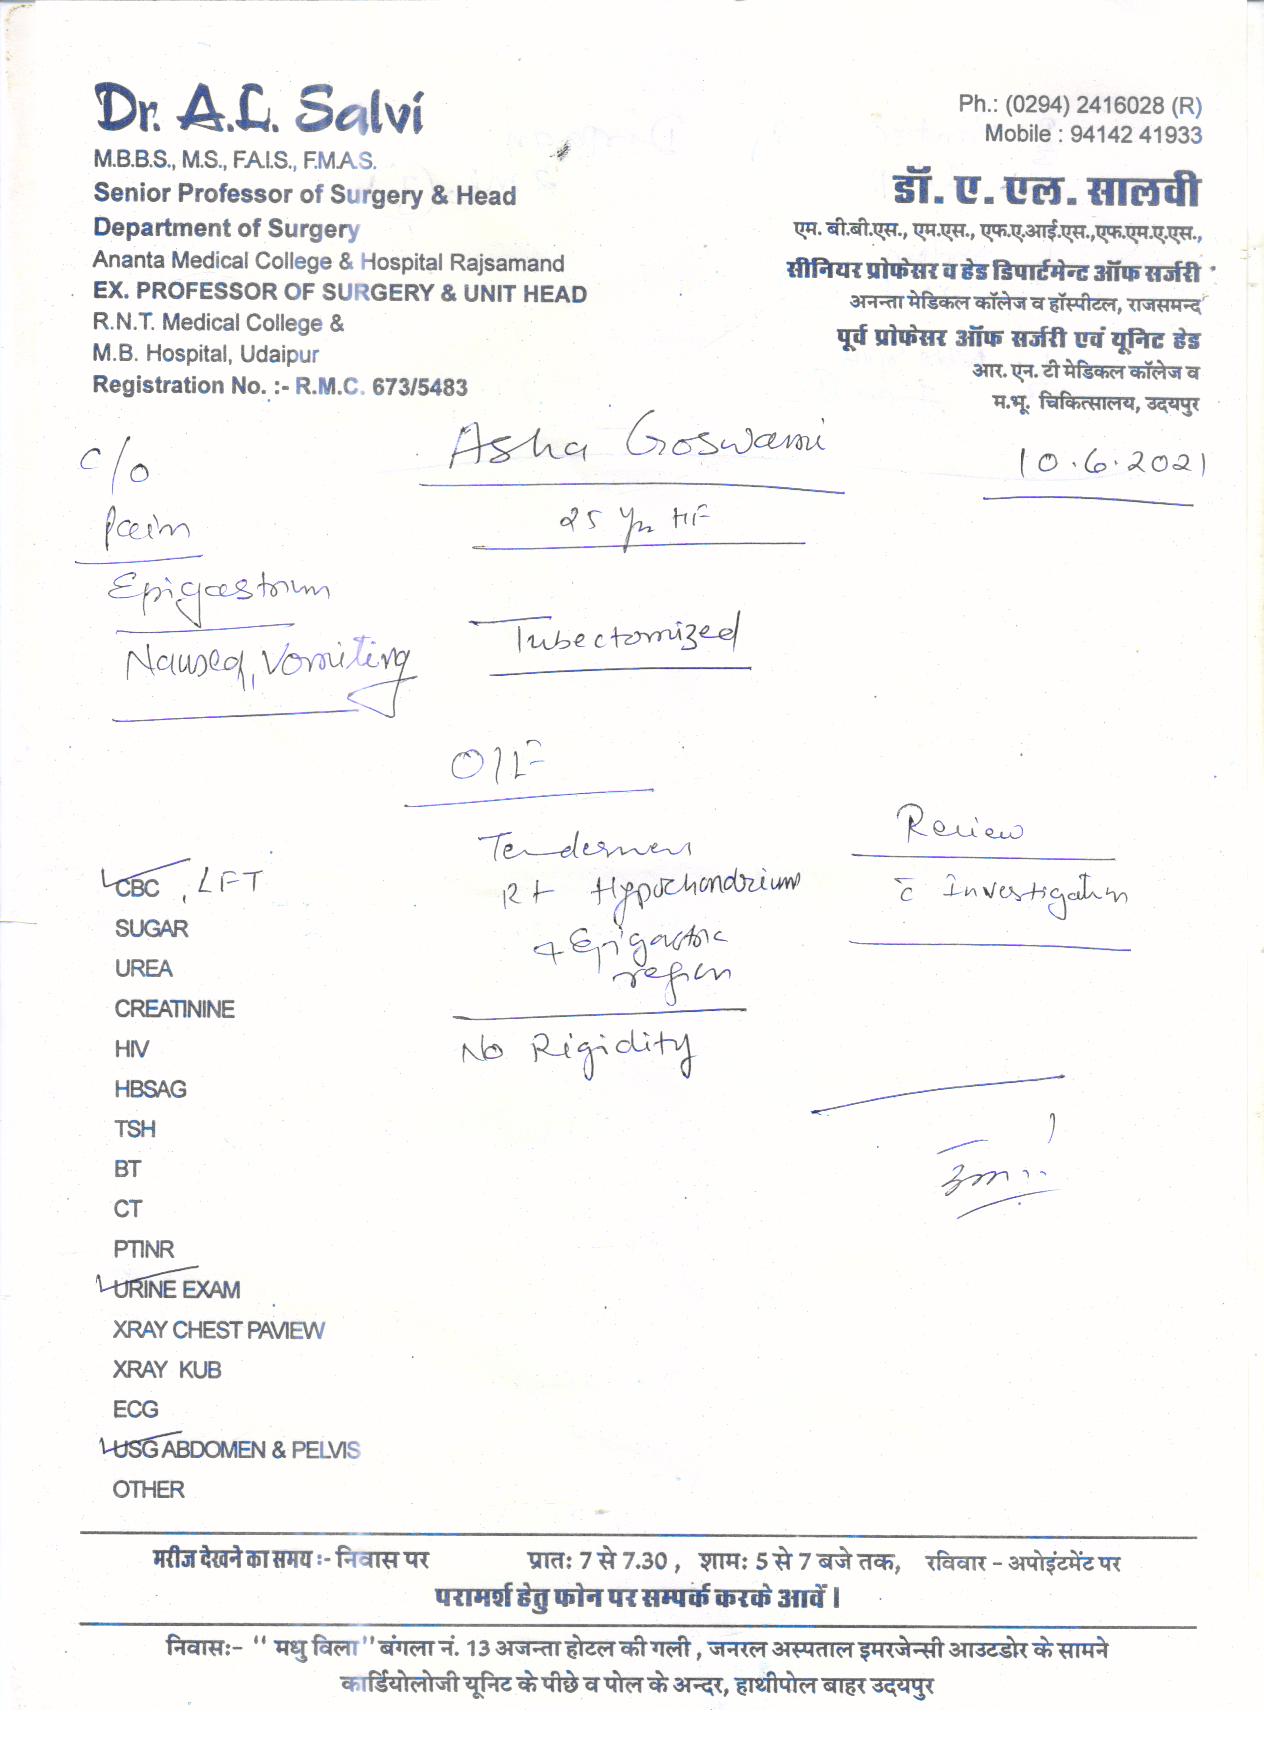 Dr. A.L. Salvi
M.B.B.S., M.S., F.A.I.S., F.M.A.S.
Senior Professor of Surgery & Head
Department of Surgery
Ananta Medical College & Hospital Rajsamand
EX. PROFESSOR OF SURGERY & UNIT HEAD
R.N.T. Medical College &
M.B. Hospital, Udaipur
Registration No. :- R.M.C. 673/5483
Ph.: (0294) 2416028 (R)
Mobile : 94142 41933
डॉ. ए. एल. सालवी
एम. बी.बी.एस., एम.एस., एफ.ए.आई.एस.,एफ.एम.ए.एस.,
सीनियर प्रोफेसर व हेड डिपार्टमेन्ट ऑफ सर्जरी
अनन्ता मेडिकल कॉलेज व हॉस्पीटल, राजसमन्द
पूर्व प्रोफेसर ऑफ सर्जरी एवं यूनिट हेड
आर. एन. टी मेडिकल कॉलेज व
म.भू. चिकित्सालय, उदयपुर
Asha Goswami
10.6.2021
25 yr HF
C/o
Pain
Epigastrium
Nausea, Vomiting
Tubectomized
O/E
Tenderness
Rt Hypochondrium
+ Epigastric
region
No Rigidity
Review
c̄ Investigation
CBC , LFT
SUGAR
UREA
CREATININE
HIV
HBSAG
TSH
BT
CT
PTINR
URINE EXAM
XRAY CHEST PAVIEW
XRAY KUB
ECG
USG ABDOMEN & PELVIS
OTHER
मरीज देखने का समय :- निवास पर प्रातः 7 से 7.30 , शामः 5 से 7 बजे तक, रविवार – अपोइंटमेंट पर
परामर्श हेतु फोन पर सम्पर्क करके आवें ।
निवासः- “ मधु विला” बंगला नं. 13 अजन्ता होटल की गली , जनरल अस्पताल इमरजेन्सी आउटडोर के सामने
कार्डियोलोजी यूनिट के पीछे व पोल के अन्दर, हाथीपोल बाहर उदयपुर